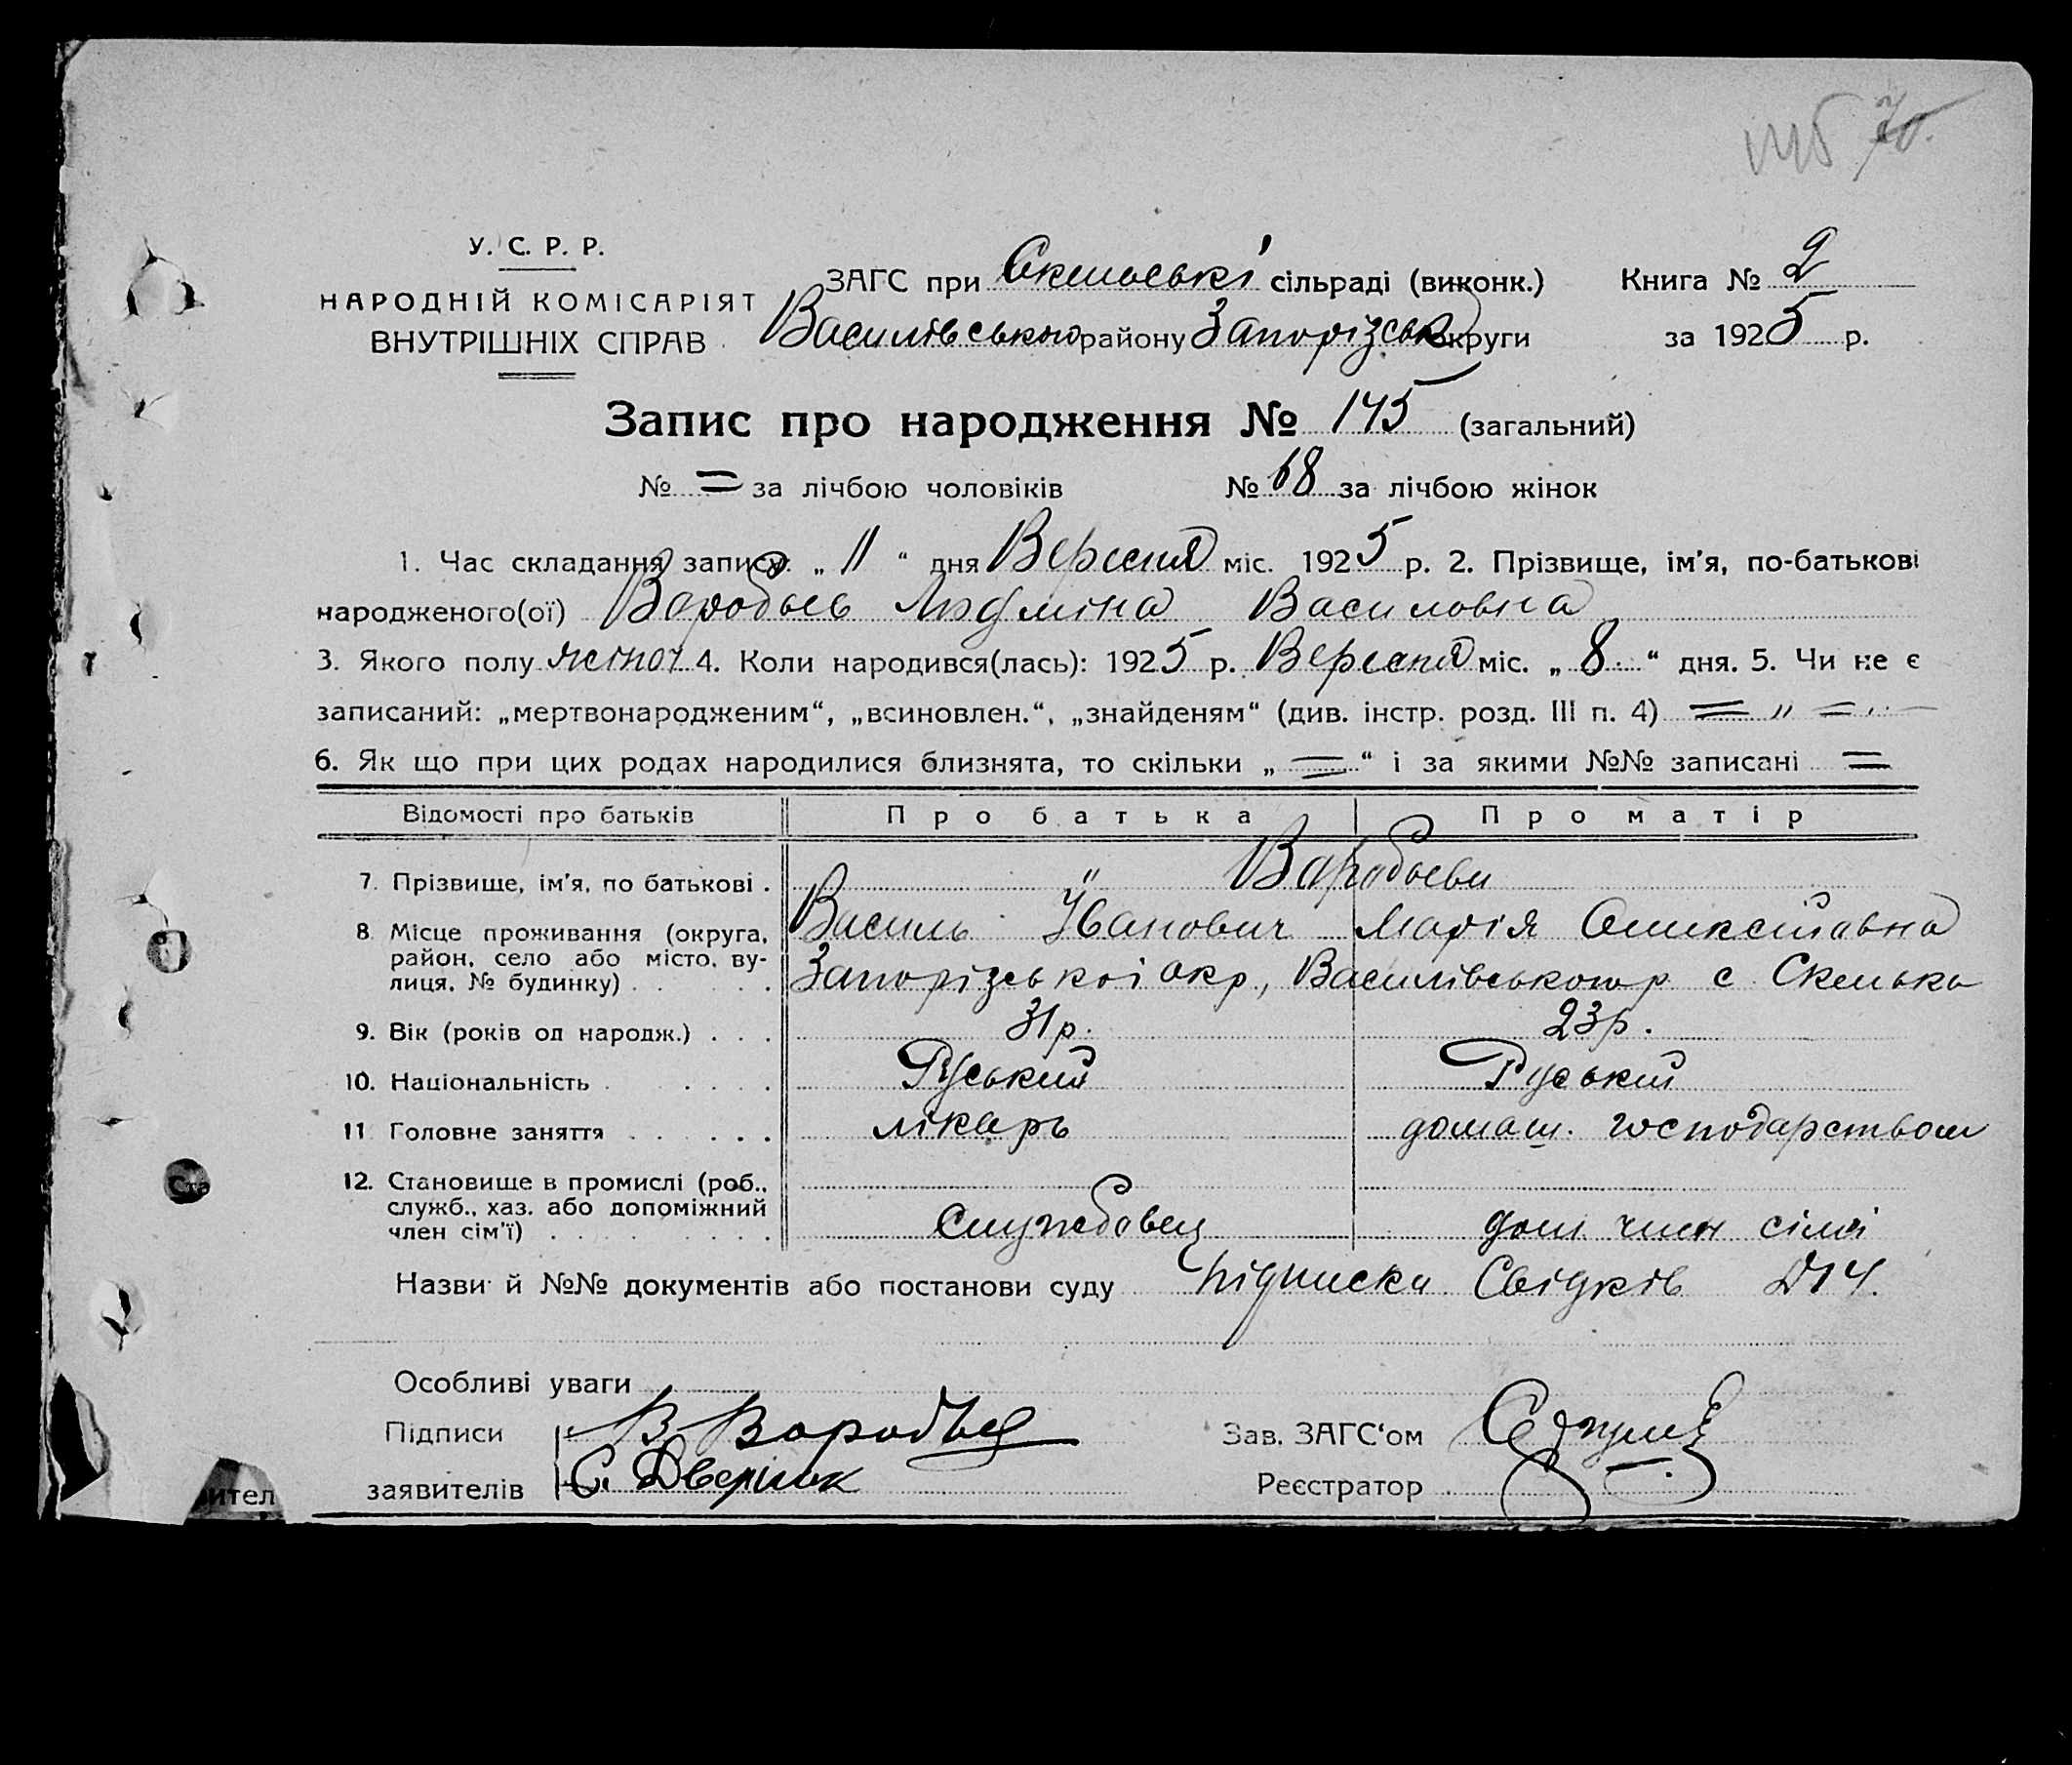 70.
У. С. Р. Р.
НАРОДНІЙ КОМІСАРІЯТ
ВНУТРІШНІХ СПРАВ
ЗАГС при Скельські сільраді (виконк.) Книга № 2
Василівського району Запорізськ округи за 1925 р.
Запис про народження № 145 (загальний)
№ = за лічбою чоловіків № 68 за лічбою жінок
1. Час складання запису: „ 11 “ дня Вересня міс. 1925 р. 2. Прізвище, ім'я, по-батькові
народженого(ої) Воробьев Людміна Василовна
3. Якого полу жіноч 4. Коли народився(лась): 1925 р. Вересня міс. „ 8 “ дня. 5. Чи не є
записаний: „мертвонародженим“, „всиновлен.“, „знайденям“ (див. інстр. розд. III п. 4) = „ =
6. Як що при цих родах народилися близнята, то скільки „ = “ і за якими №№ записані =
Відомості про батьків Про батька Про матір
7. Прізвище, ім'я, по батькові . " Воробьеви
8. Місце проживання (округа, район, село або місто, вулиця, № будинку) . Василь Іванович Марія Олексіївна
Запорізської окр., Василівського р с Скелька
9. Вік (років од народж.) . . . 31 р. 23 р.
10. Національність . . . . . Руський Руський
11. Головне заняття . . . . . лікарь домаш. господарством
12. Становище в промислі (роб.,
служб., хаз. або допоміжний
член сім'ї) . . . . . службовец дом. член сімї
Назви й №№ документів або постанови суду підписка Свідків
Особливі уваги
Підписи В Воробьев Зав. ЗАГС‘ом
заявителів С. Дверник Реєстратор
Ста
ител